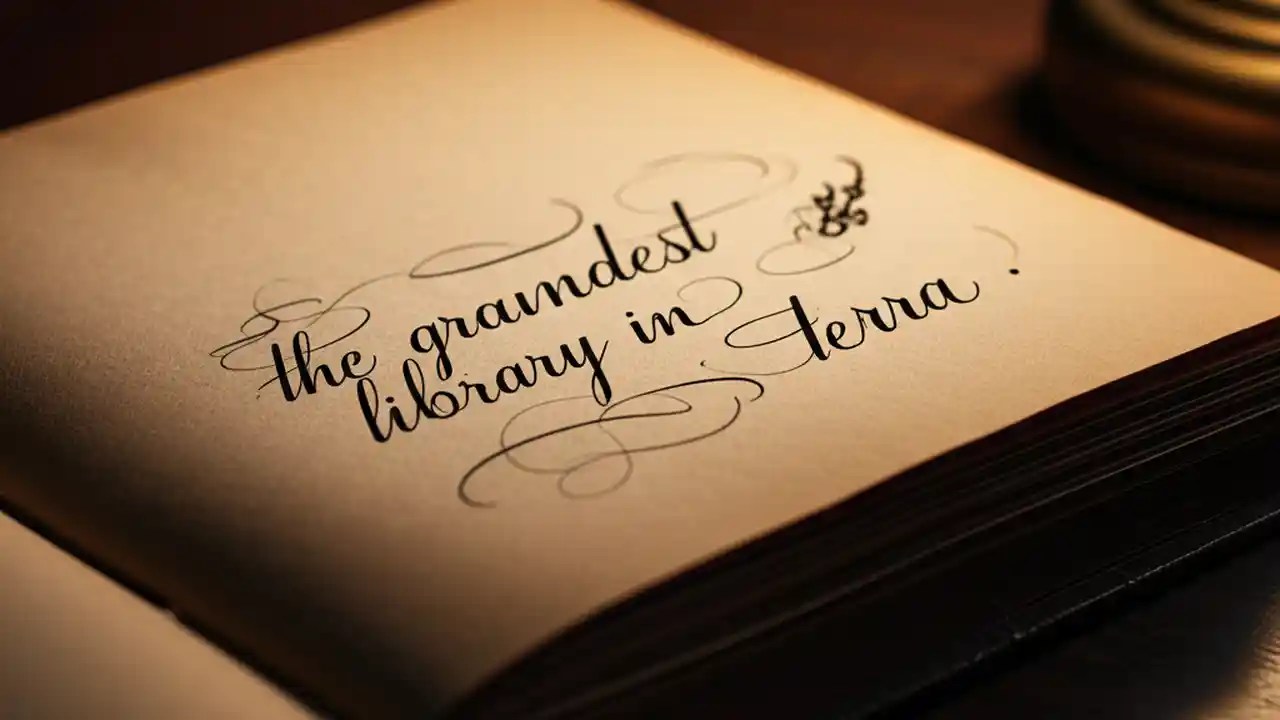 the graindest
library in terra.